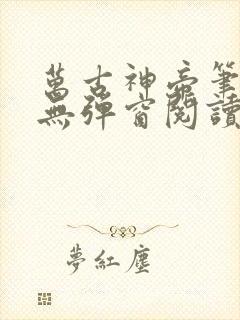 萬古神帝筆
無彈窗閱讀
夢紅塵